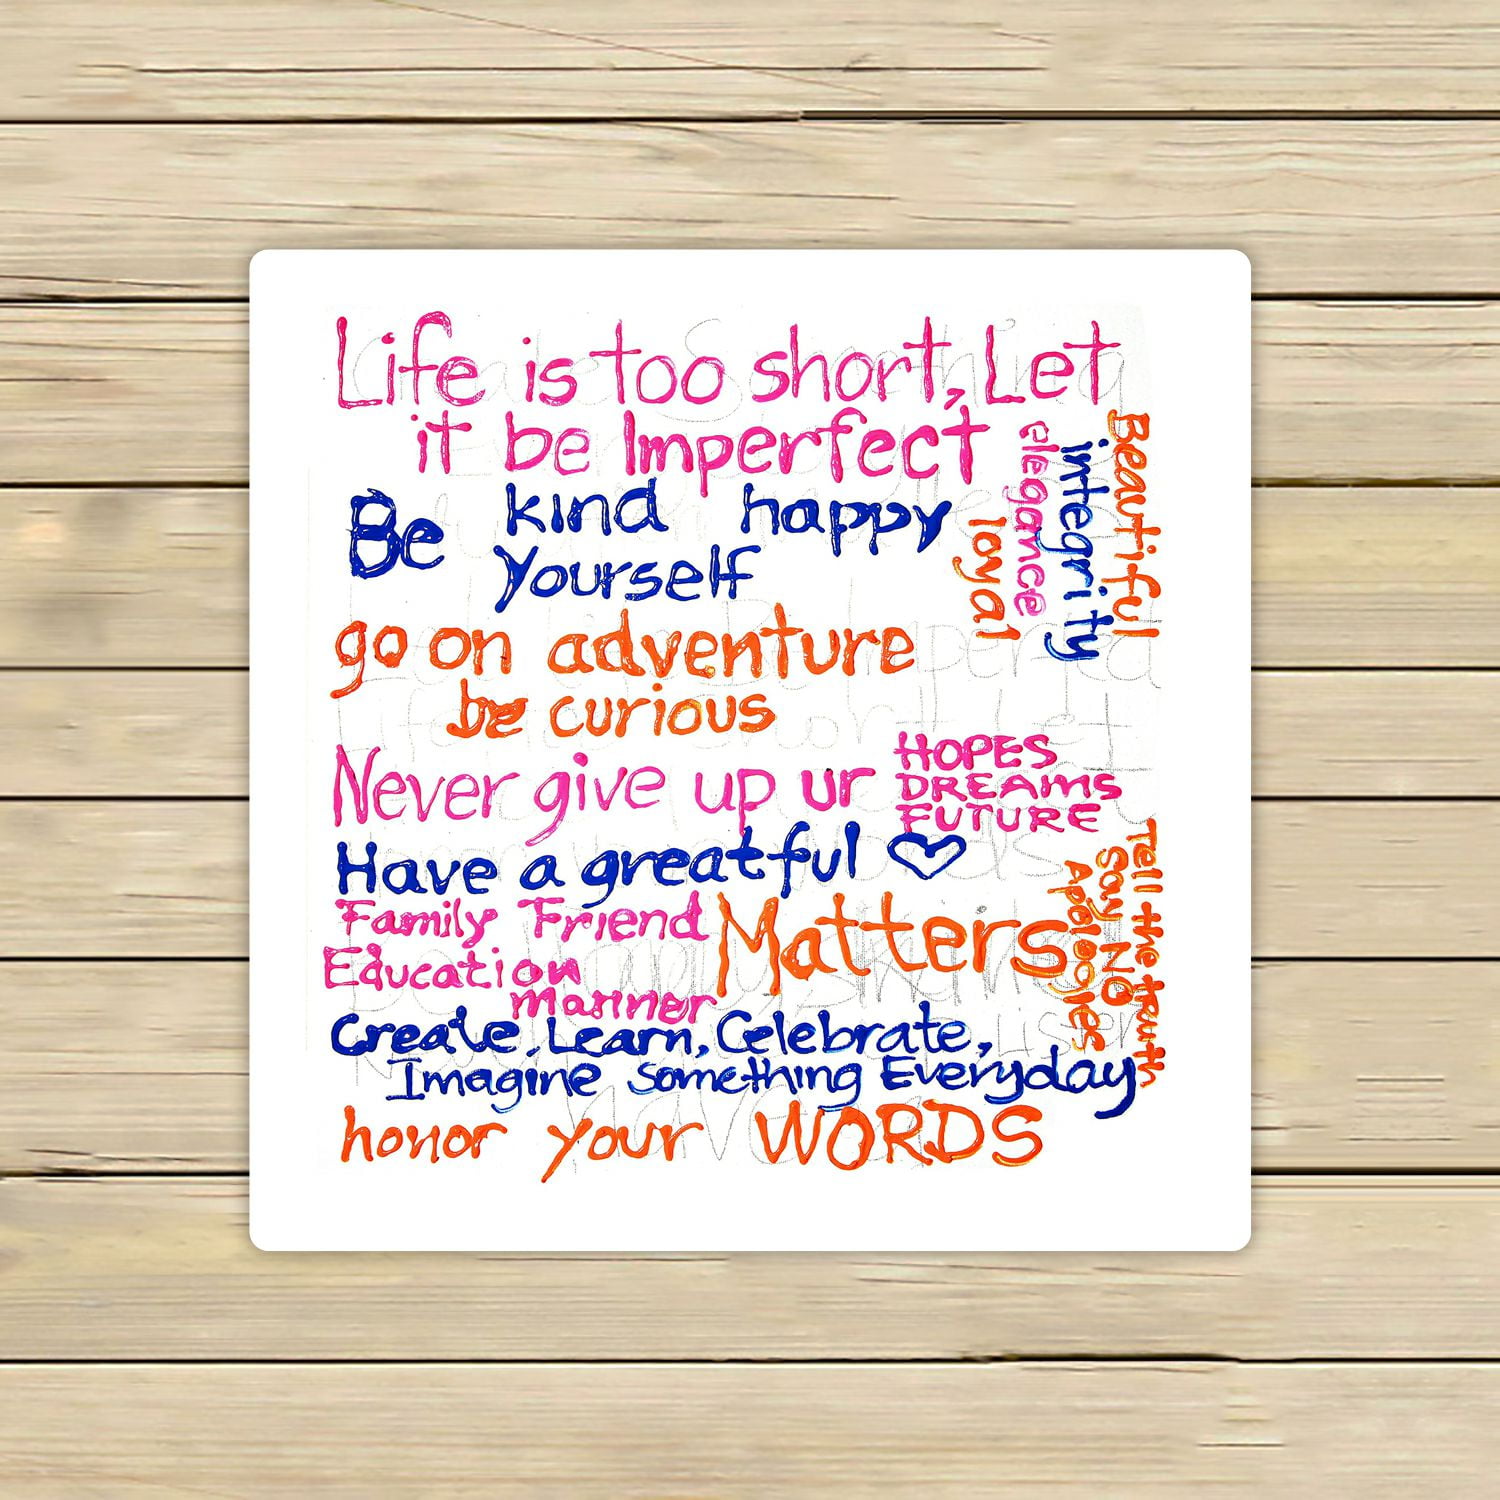 Life is too short, Let
it be Imperfect
Be kind happy
yourself
loyal
elegance
integrity
Beautiful
go on adventure
be curious
Never give up ur
HOPES
DREAMS
FUTURE
Have a greatful
Family Friend
Education
manner
Matters
Apologies
Say NO
Tell the truth
Create, Learn, Celebrate,
Imagine something Everyday
honor your WORDS